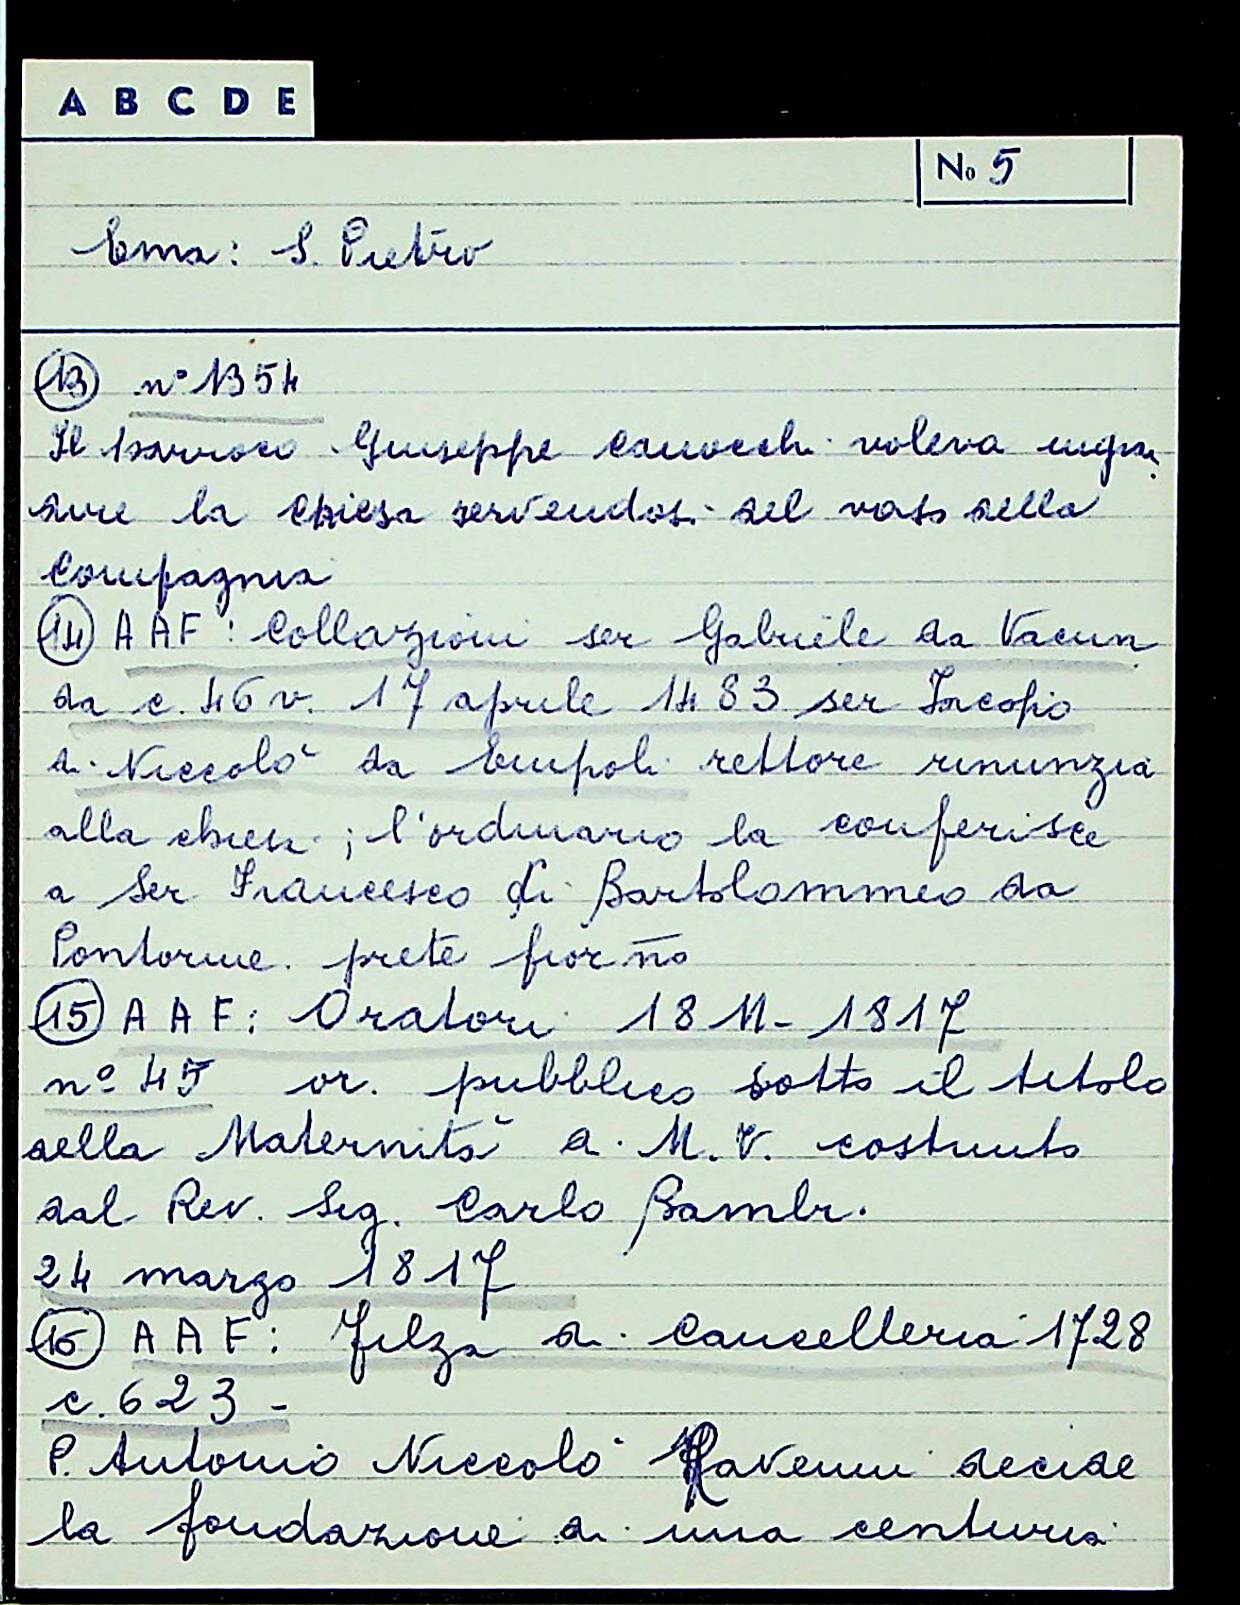 A B C D E
No 5
Ema: S. Pietro
(13) n° 1354
Il parroco Giuseppe voleva ingran
dire la chiesa servendosi del vaso della
Compagnia
(14) AAF: Collazioni ser Gabriele da Vacun
da c. 46 v. 17 aprile 1483 ser Jacopo
di Niccolò da Empoli rettore rinunzia
alla chiesa; l'ordinario la conferisce
a Ser Francesco di Bartolommeo da
Pontorme. prete fior.no
(15) AAF: Oratori 1811-1817
n° 45 or. pubblico sotto il titolo
della Maternità di M.V. costruito
dal Rev. Sig. Carlo Bambi.
24 marzo 1817
(16) AAF: Filza di Cancelleria 1728
c. 623 -
P. Antonio Niccolò Ravenni decide
la fondazione di una centuria